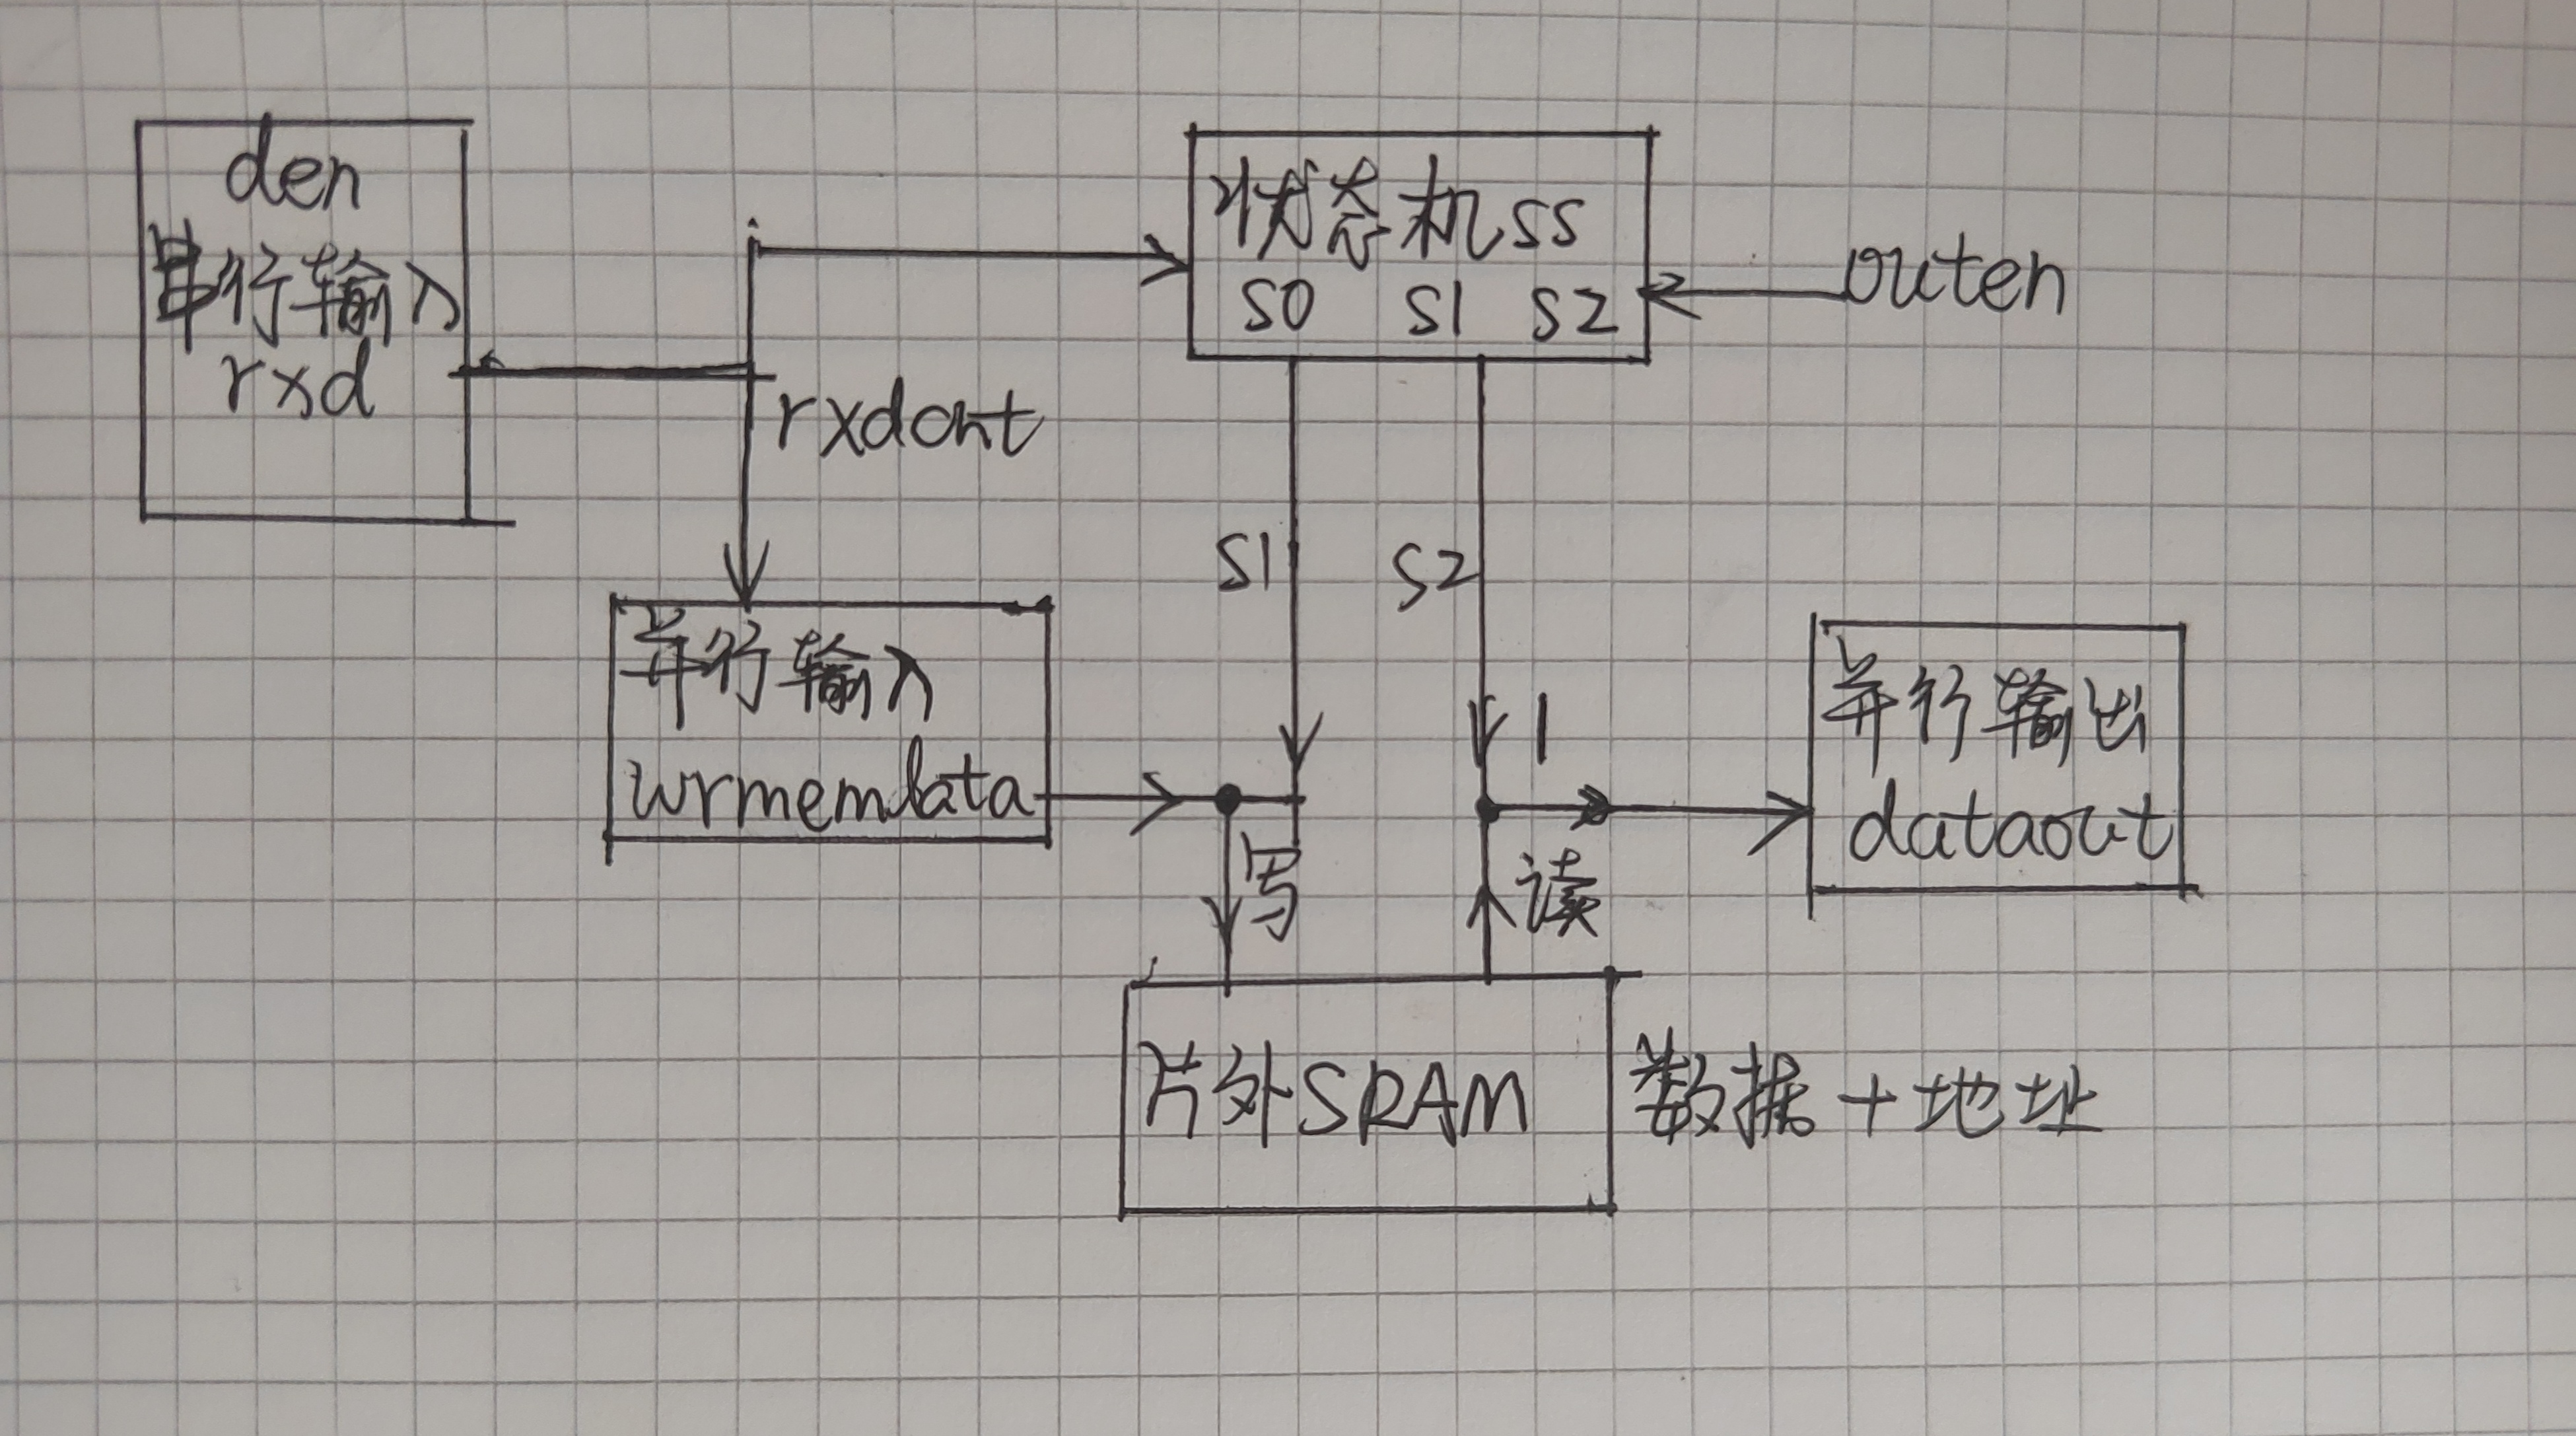 den
串行输入
rxd
状态机SS
S0 S1 S2
outen
rxdcnt
S1
S2
并行输入
wrmemdata
写
1
读
并行输出
dataout
片外SRAM
数据+地址